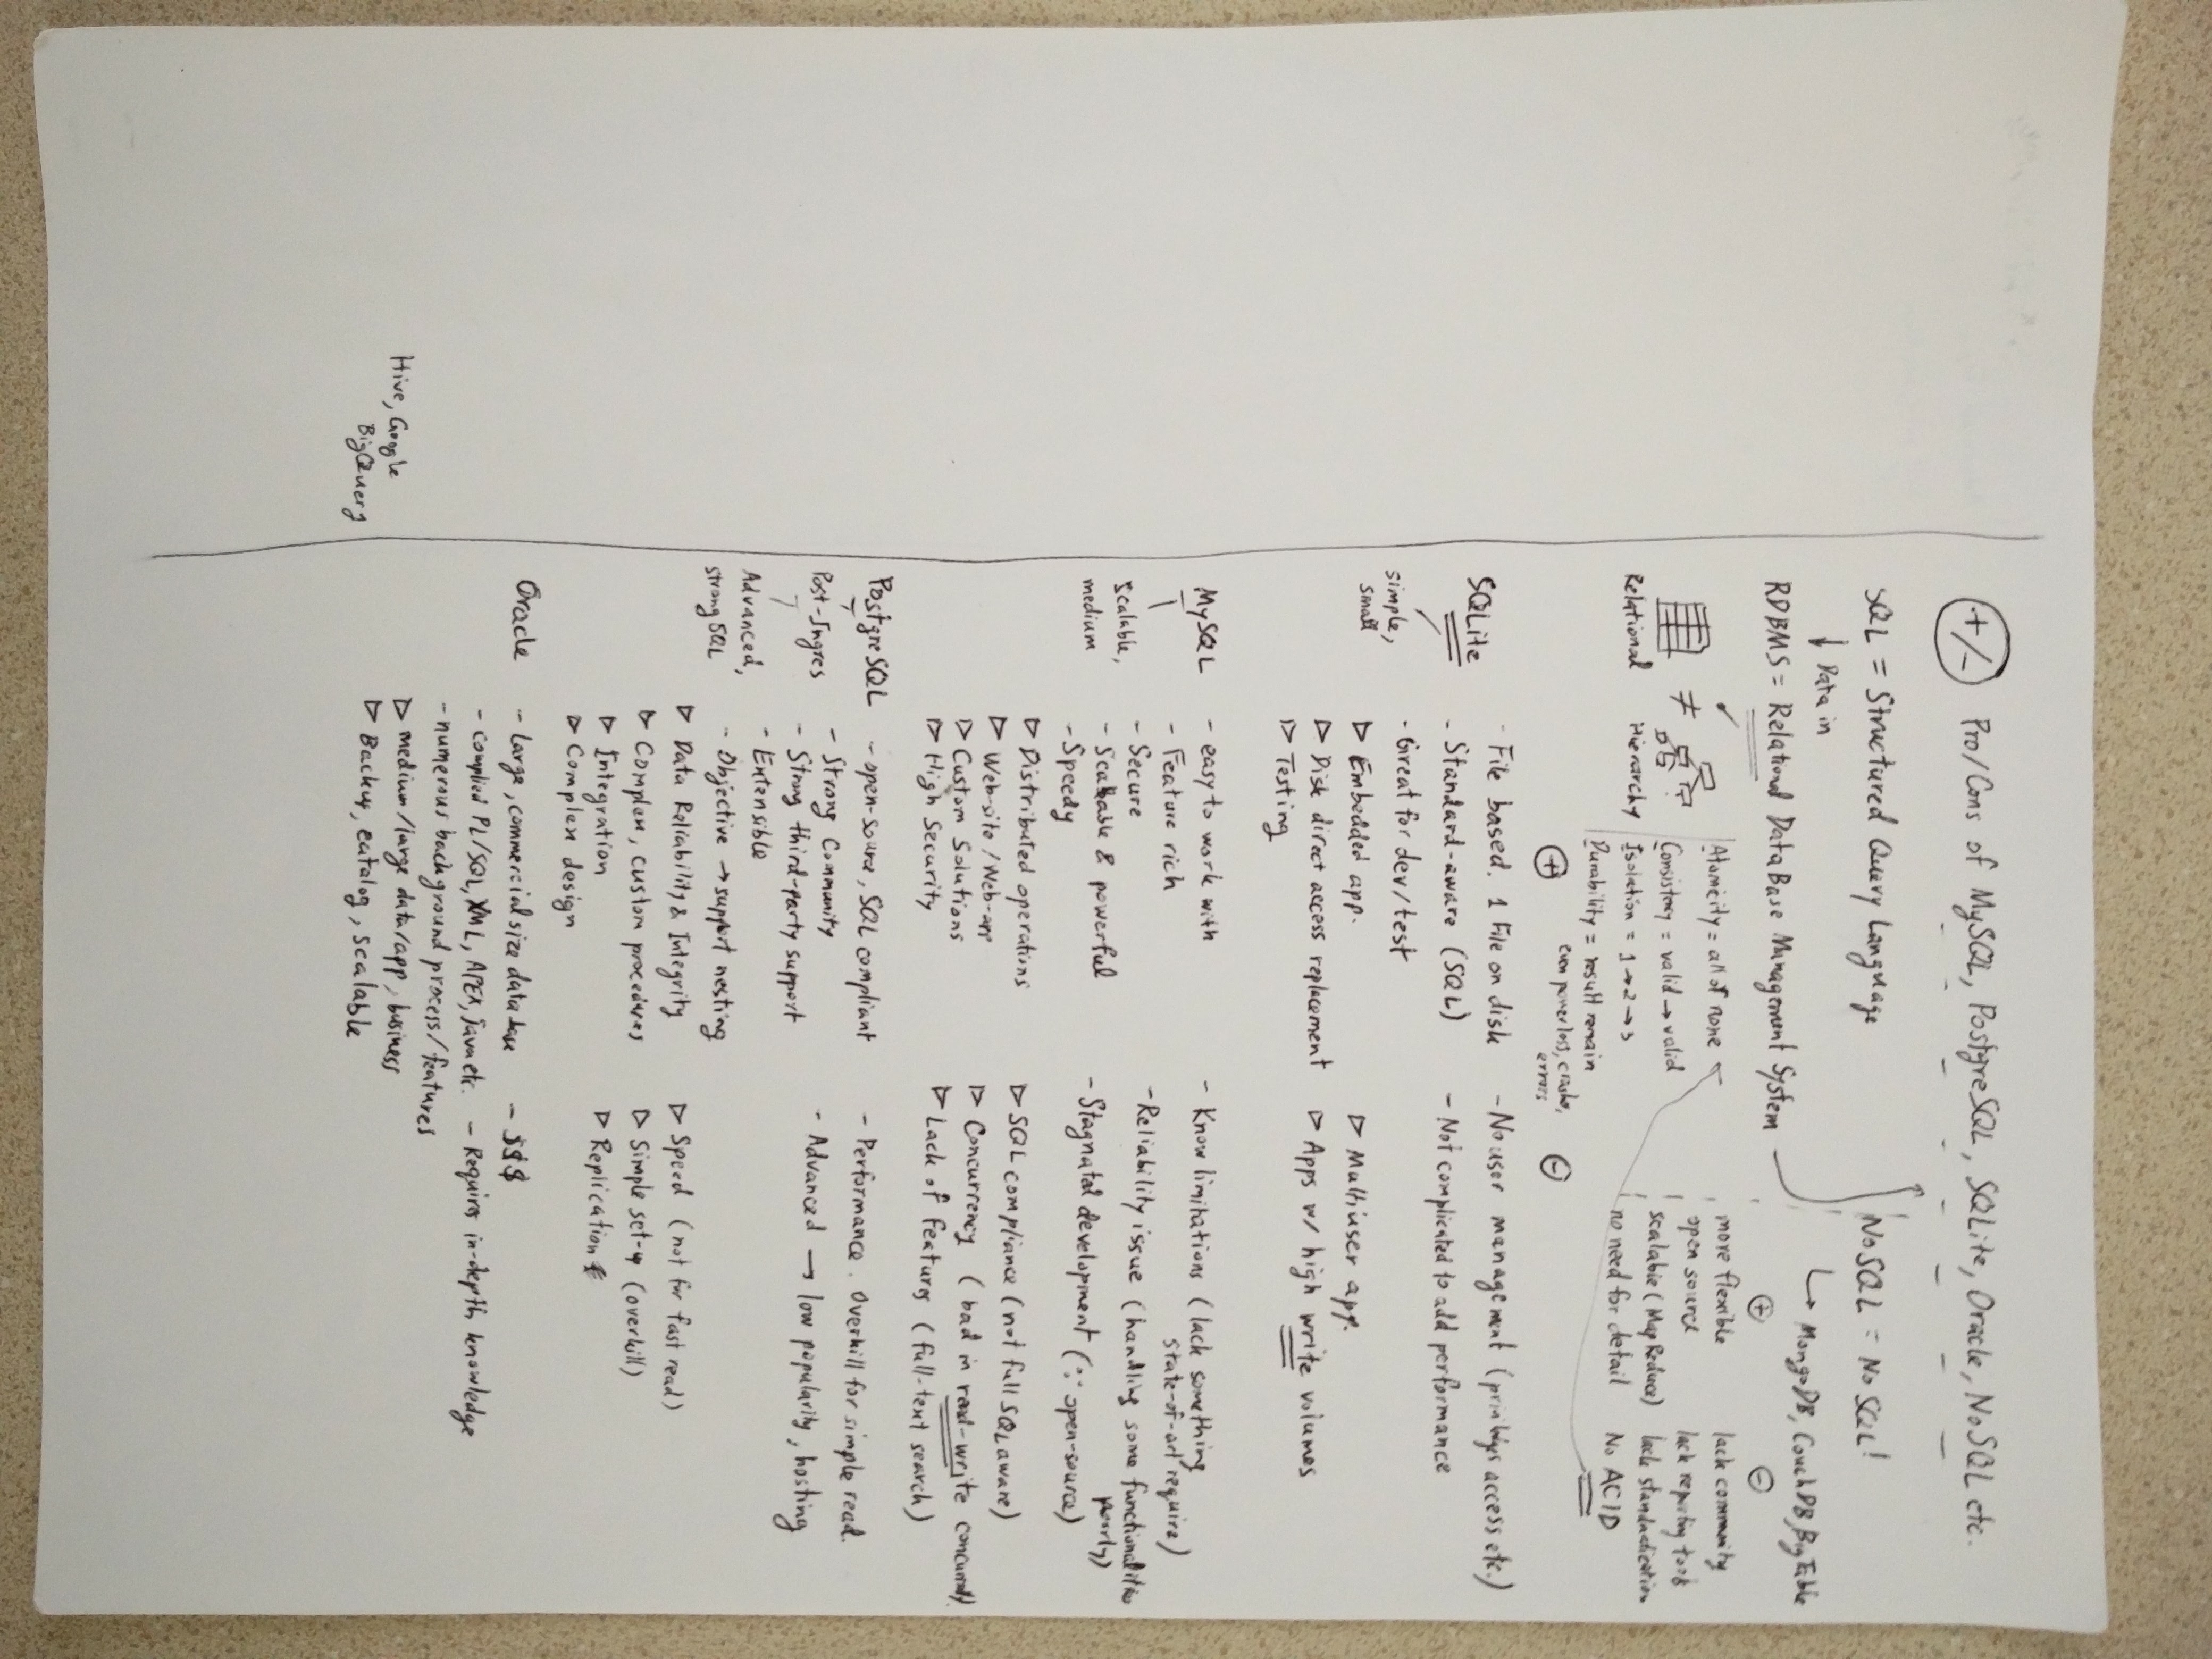 +/- Pro/Cons of MySQL, PostgreSQL, SQLite, Oracle, NoSQL etc.
SQL = Structured Query Language
↓ Data in
RDBMS = Relational DataBase Management System
NoSQL = No SQL!
↳ MongoDB, CouchDB, BigTable
⊕ ⊖
more flexible lack community
open source lack reporting tools
scalable (MapReduce) lack
no need for detail No ACID
≠
Relational Hierarchy
Atomicity = all or none
Consistency = valid → valid
Isolation = 1 → 2 → 3
Durability = result remain
even power loss, crashes,
errors
⊕ ⊖
SQLite
simple,
small
- File based. 1 File on disk
- Standard-aware (SQL)
- Great for dev/test
▷ Embedded app.
▷ Disk direct access replacement
▷ Testing
- No user management ( access etc.)
- Not complicated to add performance
▷ Multiuser app.
▷ Apps w/ high write volumes
MySQL
Scalable,
medium
- easy to work with
- Feature rich
- Secure
- Scalable & powerful
- Speedy
▷ Distributed operations
▷ Web-site / Web-app
▷ Custom Solutions
▷ High Security
- Know limitations (lack something
state-of-art require)
- Reliability issue (handling some functionalities
poorly)
- Stagnated development (∵ open-source)
▷ SQL compliance (not full SQL aware)
▷ Concurrency (bad in read-write
▷ Lack of features (full-text search)
PostgreSQL
Post-Ingres
Advanced,
strong SQL
- open-source, SQL compliant
- Strong Community
- Strong third-party support
- Extensible
- Objective → support nesting
▷ Data Reliability & Integrity
▷ Complex, custom procedures
▷ Integration
▷ Complex design
- Performance. Overkill for simple read.
- Advanced → low popularity, hosting
▷ Speed (not for fast read)
▷ Simple set-up (overkill)
▷ Replication
Oracle
- Large, commercial size database
- complied PL/SQL, XML, APEX, Java etc.
- numerous background process/features
▷ medium/large data/app, business
▷ Backup, catalog, scalable
- $$$
- Requires in-depth knowledge
Hive, Google
BigQuery